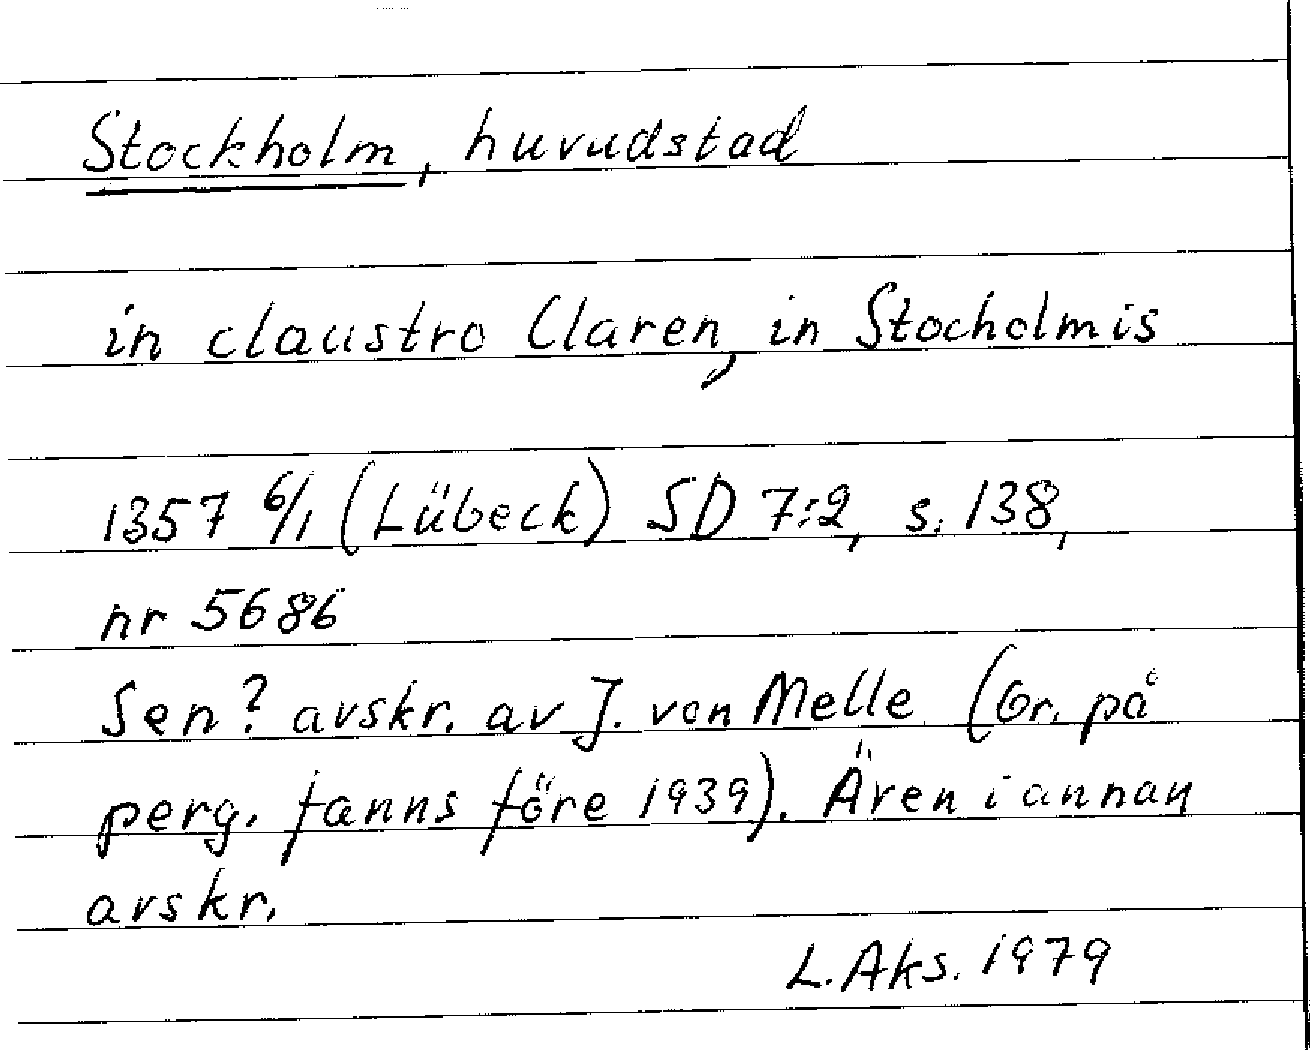 Stockholm, huvudstad
in claustro Claren, in Stocholmis
1357 6/1 (Lübeck) SD 7:2, s. 138,
nr 5686
Sen? avskr. av J. von Melle (Or. på
perg. fanns före 1939). Även i annan
avskr.
L. Aks. 1979